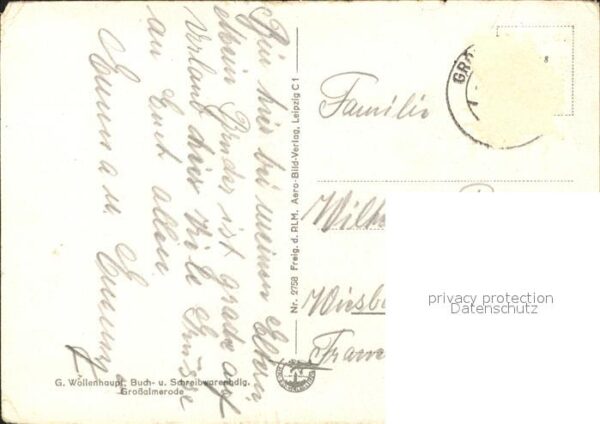 Bin hier bei meinen Eltern
mein Bruder ist grade auf
Urlaub hier viele Grüsse
an Euch allen
Emma u.
G. Wollenhaupt, Buch- u. Schreibwarenhdlg.
Großalmerode
Nr. 2758 Freig. d. RLM, Aero-Bild-Verlag, Leipzig C 1
GRO
8
Familie
Wilh
Wiesb
privacy protection
Datenschutz